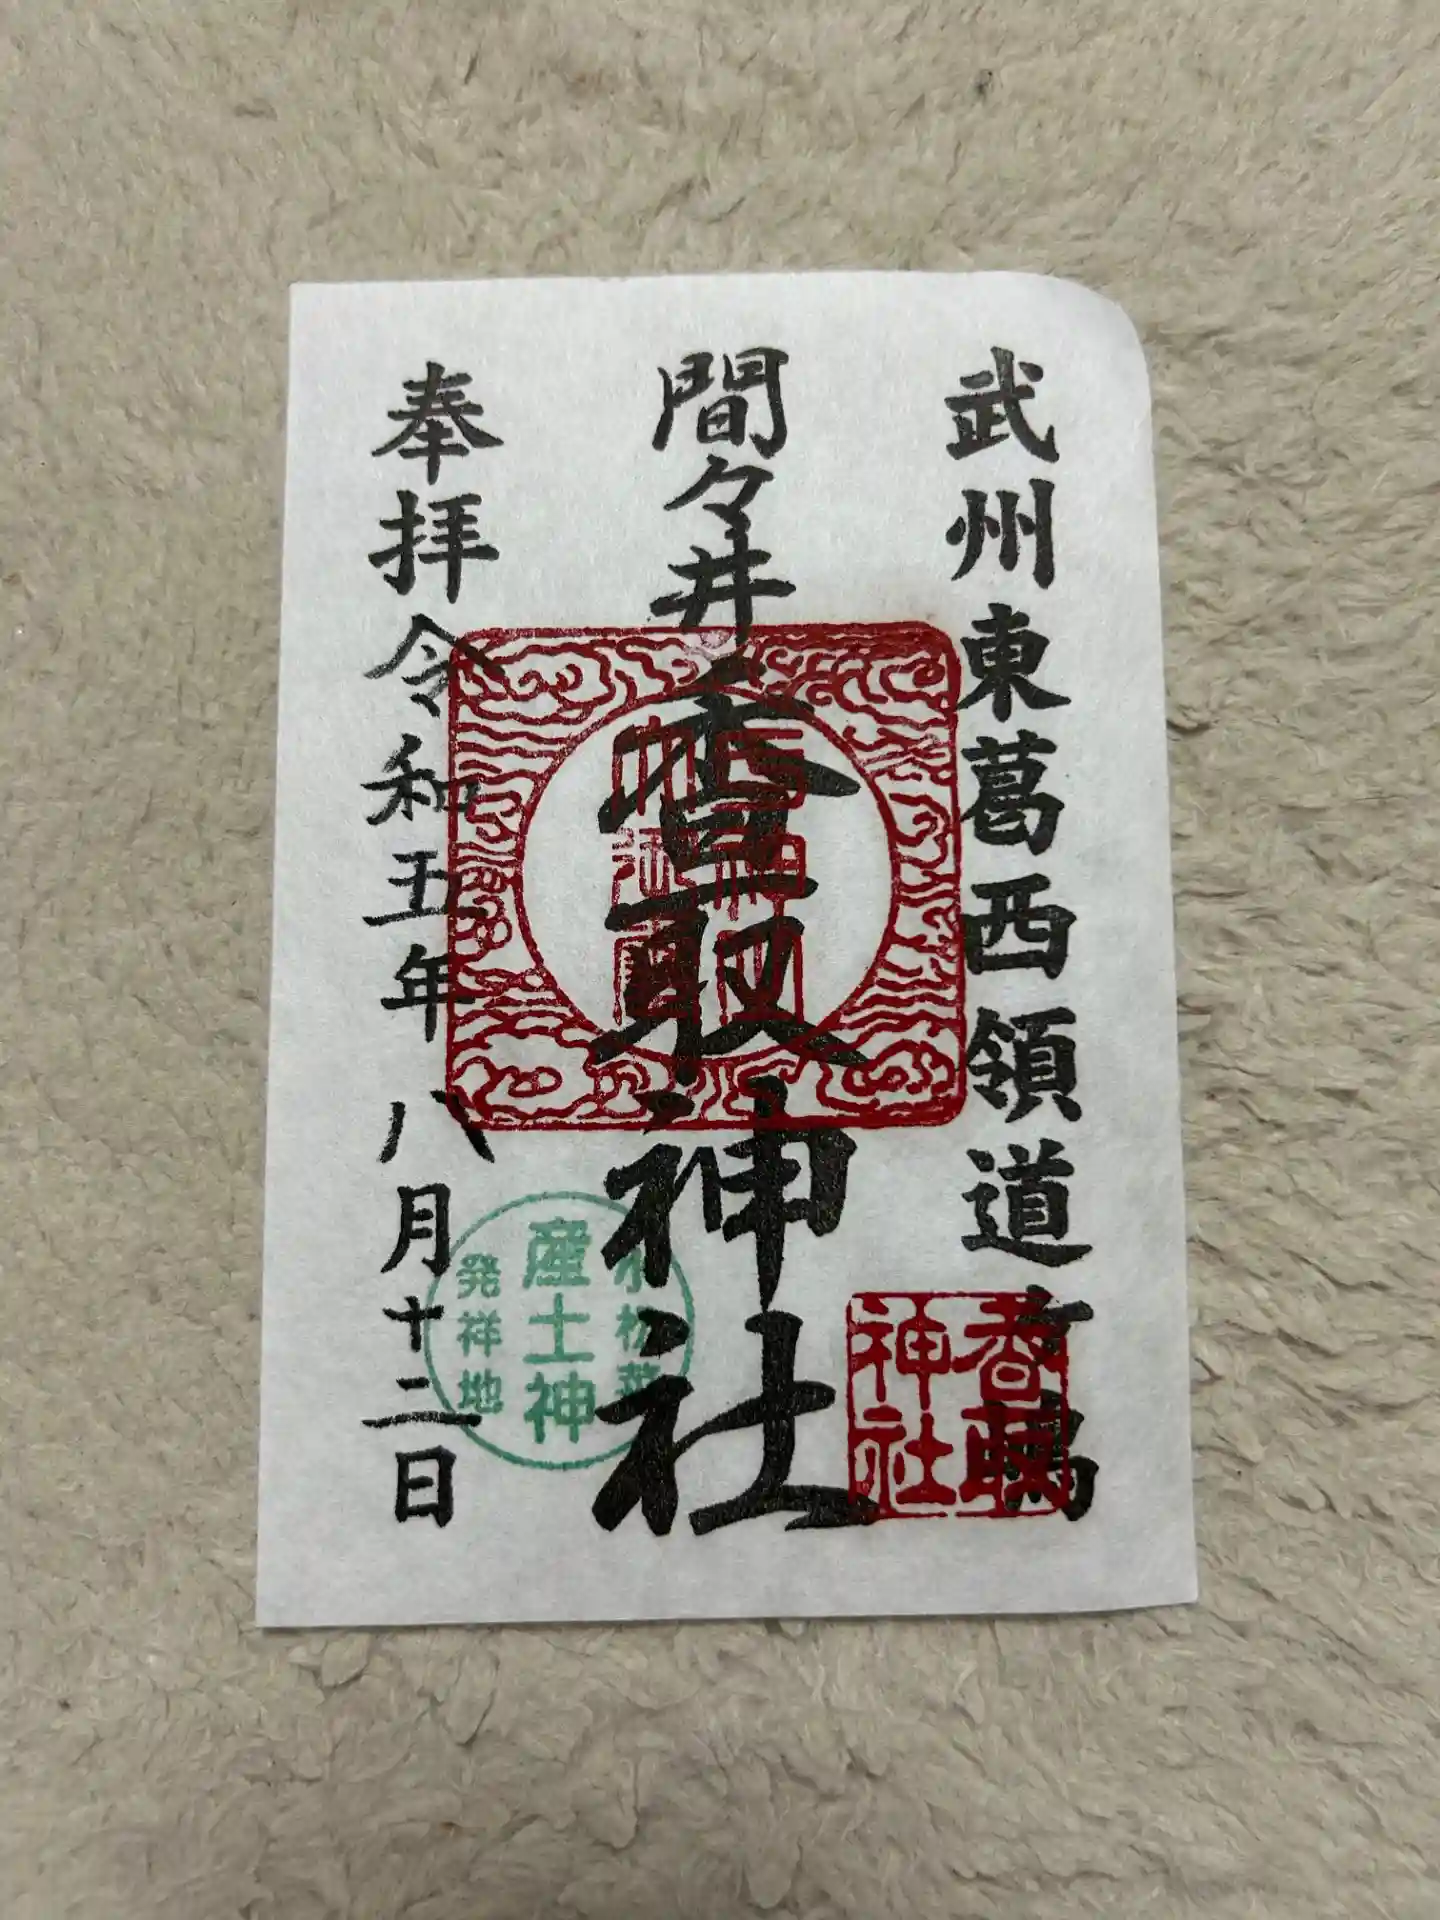 武州東葛西領道ヶ嶋
間々井香取神社
奉拝令和五年八月十二日
香取神社
小松菜
産土神
発祥地